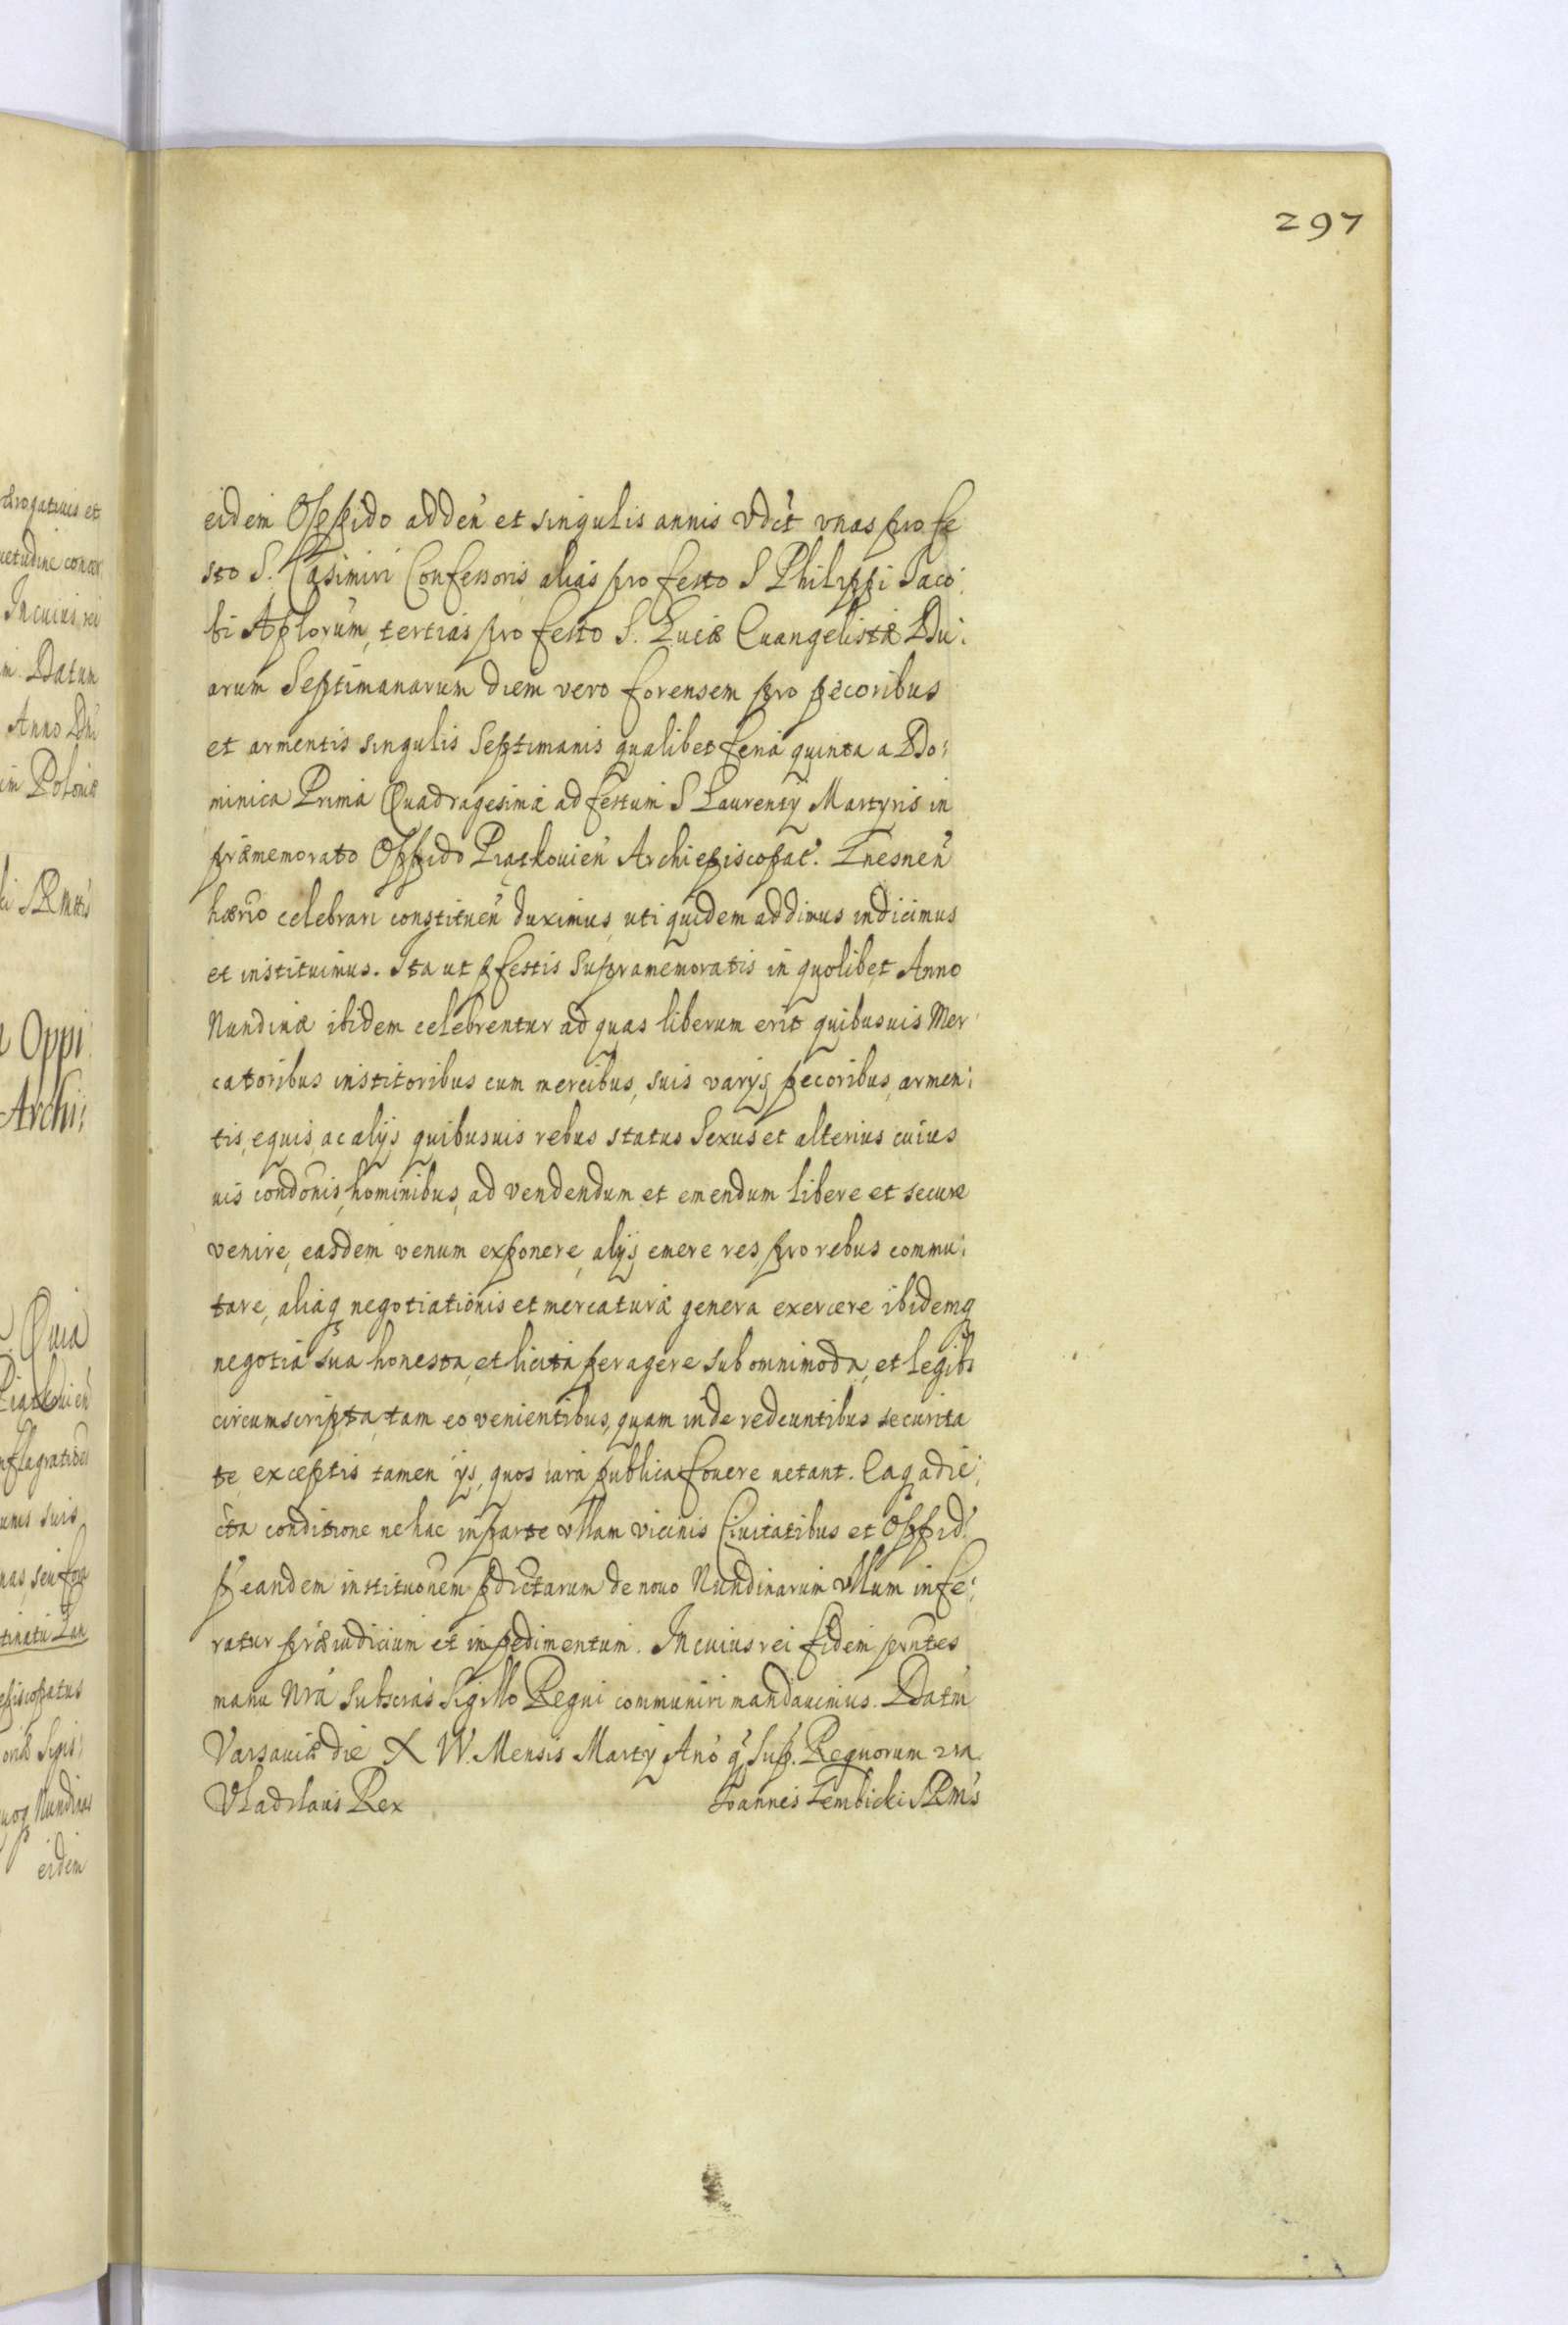 297
eidem Oppido adden̄ et singulis annis vdc̄t vnas pro fe
sto S. Casimiri Confessoris, alias pro festo S Philippi Iaco:
bi Aplorum, tertias pro festo S. Lucæ Euangelistæ Du:
arum Septimanarum diem vero forensem pro pecoribus
et armentis singulis Septimanis qualibet feria quinta a Do:
minica Prima Quadragesimæ ad festum S Laurentij Martyris in
præmemorato Oppido Piątkouien̄ Archiepiscopat. Gnesnen̄
hærio celebrari constituen̄ duximus, uti quidem addimus indicimus
et instituimus. Ita ut p festis supramemoratis in quolibet Anno
Nundinæ ibidem celebrentur ad quas liberum erit quibusuis Mer
catoribus institoribus cum mercibus, suis varijs, pecoribus, armen:
tis, equis, ac alijs quibusuis rebus status Sexus et alterius cuius
uis condonis, hominibus, ad vendendum et emendum libere et secure
venire, easdem venum exponere, alijs emere res pro rebus commu:
tare, aliaq negotiationis et mercaturæ genera exercere ibidemq
negotia sua honesta, et licita peragere sub omnimoda, et legibs
circumscripta, tam eo venientibus, quam inde redeuntibus securita
te, exceptis tamen ijs, quos iura publica fouere uetant. Eaq adie:
cta conditione ne hac in parte ullam vicinis Ciuitatibus et Oppid
p eandem instituōnem pdictarum de nouo Nundinarum ullum infe:
ratur præiudicium et impedimentum. In cuius rei fidem pn̄tes
manu Nrā subscras Sigillo Regni communiri mandauimus. Datm
Varsauiæ die X W. Mensis Martij Ano q̄ Sup. Regnorum
Vladislaus Rex Ioannes Gembicki SRMs
rogatiuis et
uetudine concor
In cuius rei
m. Datum
Anno Dni
im Poloniæ
ki SRMttis
Oppi
Archi:
Quia
Piątkouien̄
suis
nas, seu fora
episcopatus
oriæ Sigis:
Nundinas
eidem